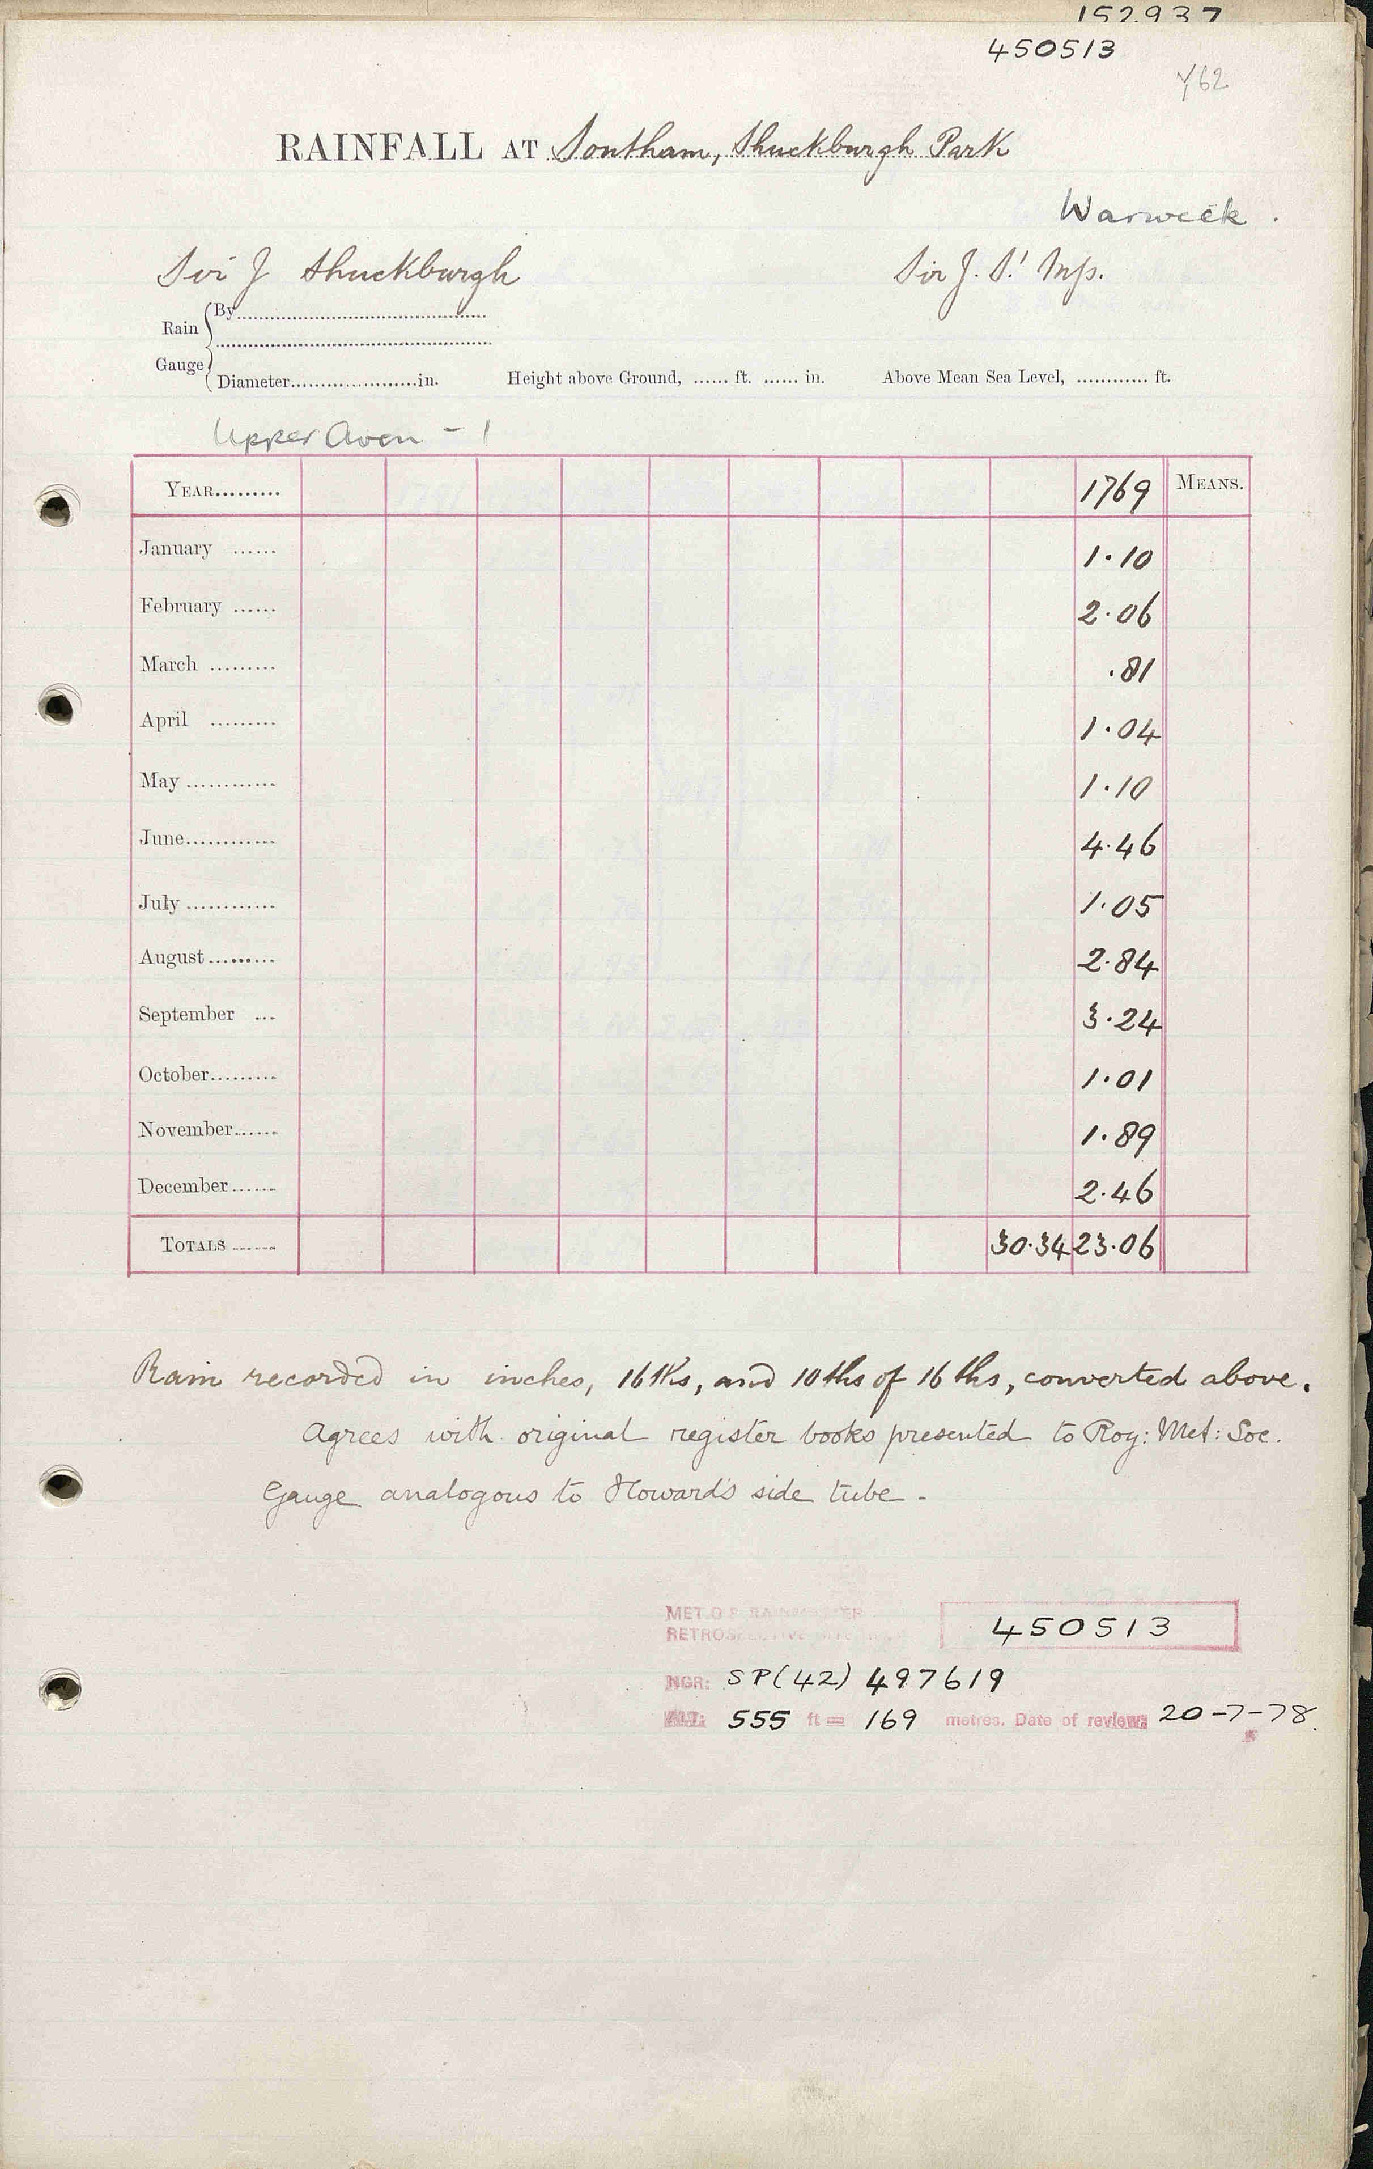 152937
450513
Y62
RAINFALL AT Southam, Shuckburgh Park
Warwick.
Sir J Shuckburgh Sir J. S.' MSS.
Rain Gauge { By..........
Diameter..........in. Height above Ground, ...... ft. ...... in. Above Mean Sea Level, ............ ft.
Upper Avon - 1
YEAR......... 1769 MEANS.
January ...... 1.10
February ...... 2.06
March ......... .81
April ......... 1.04
May ............ 1.10
June............ 4.46
July ............ 1.05
August......... 2.84
September ... 3.24
October......... 1.01
November...... 1.89
December...... 2.46
TOTALS ...... 30.34 23.06
Rain recorded in inches, 16ths, and 10ths of 16ths, converted above.
Agrees with original register books presented to Roy: Met: Soc.
Gauge analogous to Howard's side tube.
MET.O.8 RAINMASTER
RETROSPECTIVE 450513
NGR: SP(42) 497619
ALT: 555 ft = 169 metres. Date of review: 20-7-78.